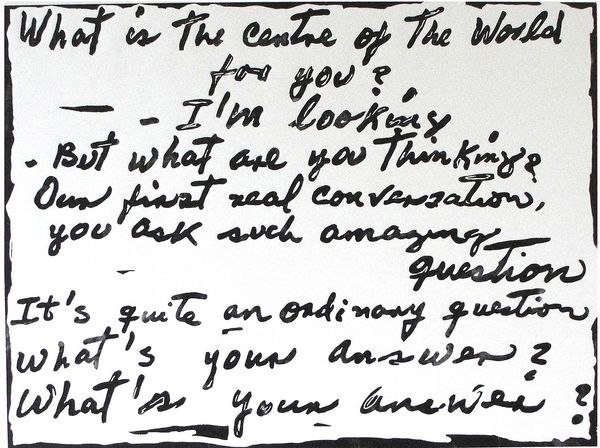 What is the centre of the World
for you?
- I'm looking
- But what are you thinking?
Our first real conversation,
you ask such amazing
question
It's quite an ordinary question
What's your answer?
What's your answer?